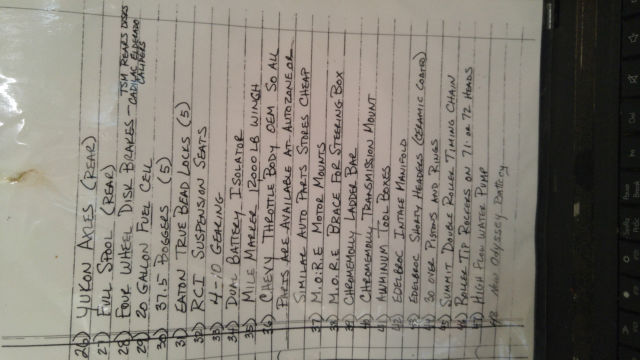 26) YUKON AXLES (REAR)
27) FULL SPOOL (REAR)
28) FOUR WHEEL DISK BRAKES - TSM REARS DISCS
CADILAC ELDERADO
CALIPERS
29) 20 GALLON FUEL CELL
30) 37.5 BOGGERS (5)
31) EATON TRUE BEAD LOCKS (5)
32) RCI SUSPENSION SEATS
33) 4-10 GEARING
34) DUAL BATTERY ISOLATOR
35) MILE MARKER 12000 LB WINCH
36) CHEVY THROTTLE BODY OEM SO ALL
PARTS ARE AVAILABLE AT AUTOZONE OR
SIMILAR AUTO PARTS STORES CHEAP
37) M.O.R.E MOTOR MOUNTS
38) M.O.R.E BRACE FOR STEERING BOX
39) CHROMEMOLLY LADDER BAR
40) CHROMEMOLLY TRANSMISSION MOUNT
41) ALUMINUM TOOL BOXES
42) EDELBROC INTAKE MANIFOLD
43) EDELBROC SHORTY HEADERS (CERAMIC COATED)
44) 30 OVER PISTONS AND RINGS
45) SUMMIT DOUBLE ROLLER TIMING CHAIN
46) ROLLER TIP ROCKERS ON 71 OR 72 HEADS
47) HIGH FLOW WATER PUMP
48 New Odyssey Battery